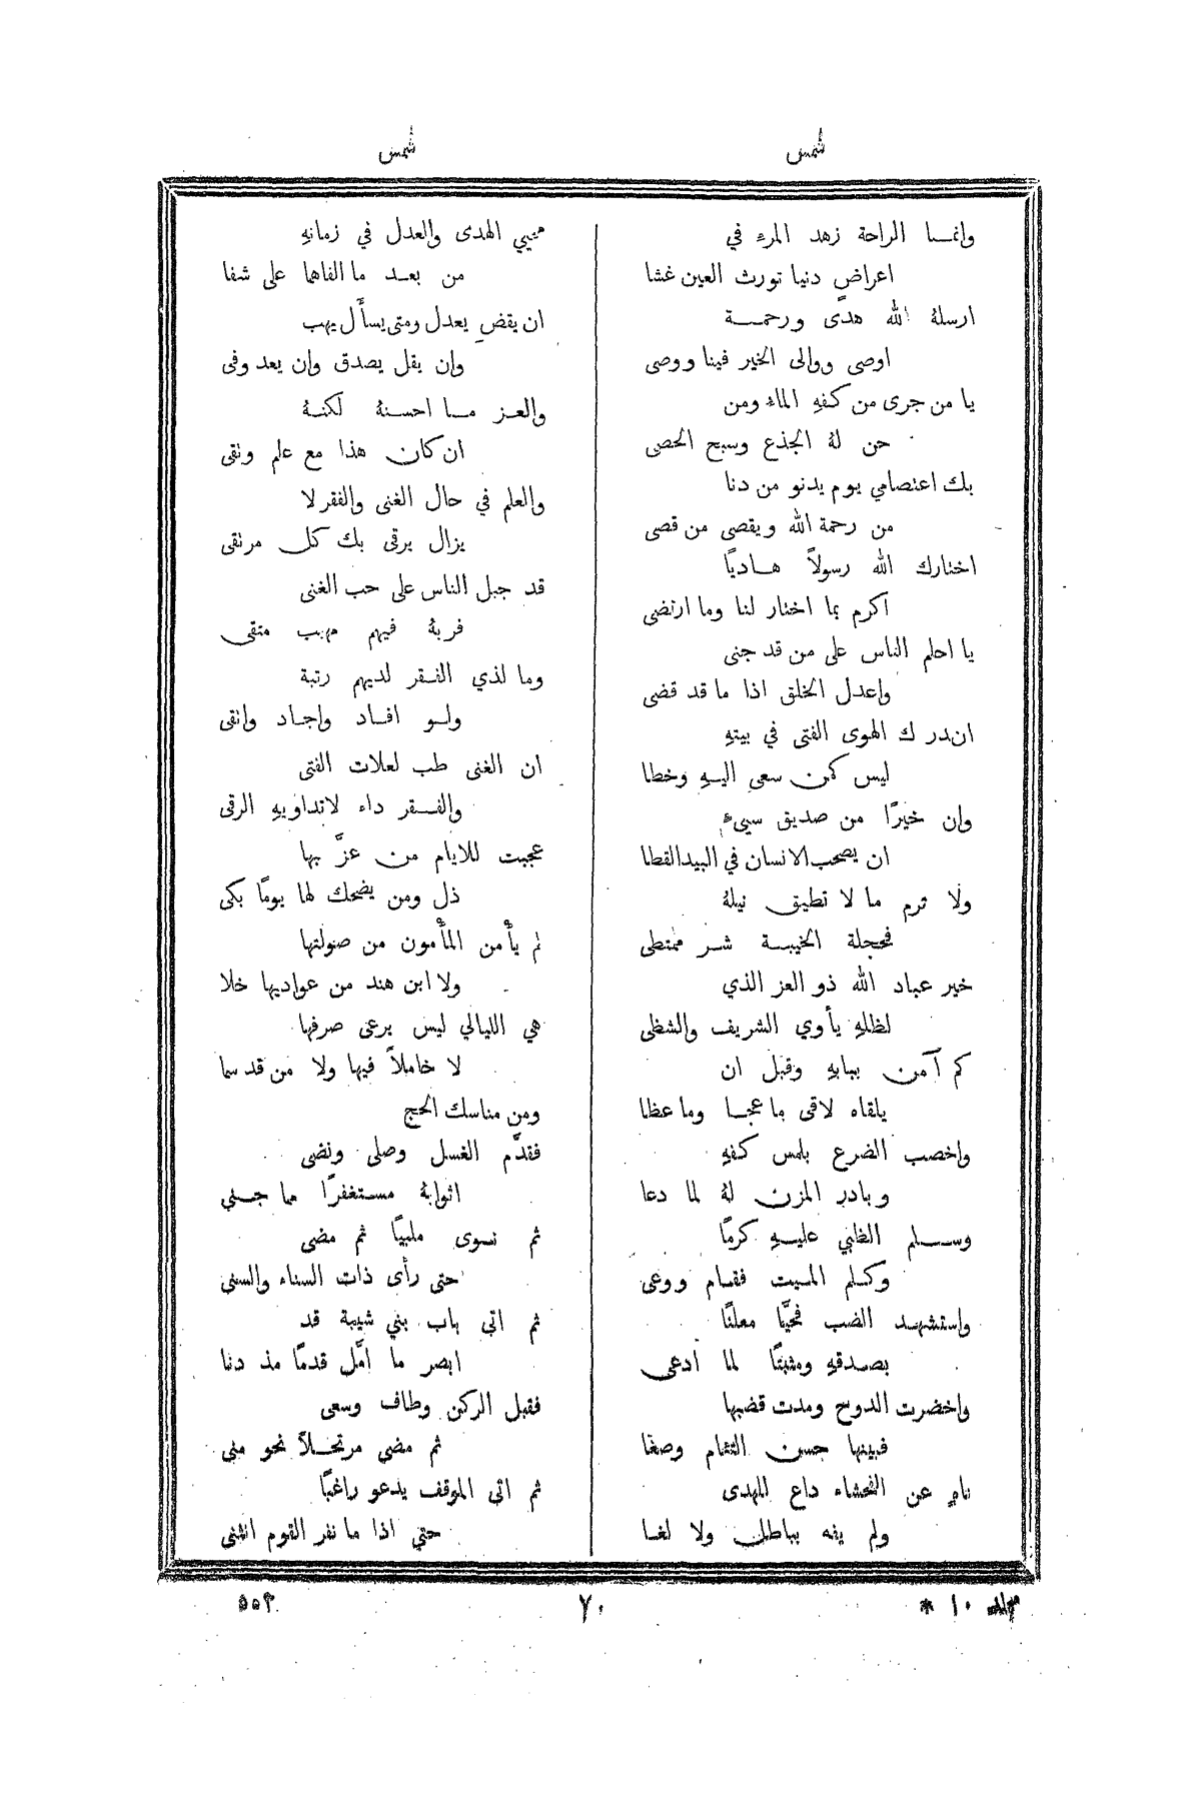 شمس
شمس
وانمـا الراحة زهد المرء في
اعراض دنيا تورث العين غشا
ارسلهُ الله هدًى ورحمـة
اوصى ووالى الخير فينا ووصى
يا من جرى من كفهِ الماء ومن
حن لهُ الجذع وسبح الحصى
بك اعتصامي يوم يدنو من دنا
من رحمة الله ويقصى من قصى
اختارك الله رسولاً هـاديًا
اكرم بما اختار لنا وما ارتضى
يا احلم الناس على من قد جنى
واعدل الخلق اذا ما قد قضى
ان در ك الهوى الفتى في بيتهِ
ليس كمن سعى اليـهِ وخطا
وان خيرًا من صديق سيىء
ان يصحب الانسان في البيد القطا
ولا ترم ما لا تطيق نيلهُ
فحجلة الخيبـة شـر ممتطى
خير عباد الله ذو العز الذي
لظلهِ يأوي الشريف والشظى
كم آمن ببابهِ وقبل ان
يلقاه لاقى ما عجـا وما عظا
واخصب الضرع بلمس كفهِ
وبادر المزن لهُ لما دعا
وســلم الظبي عليـهِ كرمًا
وكـلم الميت فقـام ووعى
واستشهـد الضب فحيَّا معلنًا
بصـدقهِ ومثبتًا لما ادعى
واخضرت الدوح ومدت قضبها
فبينها حسن التئام وصغا
ناهٍ عن الفحشاء داع للهدى
ولم يفه بباطل ولا لغـا
محيي الهدى والعدل في زمانهِ
من بعـد ما الفاهما على شفا
ان يقضِ يعدل ومتى يسأَل يهب
وان يقل يصدق وان يعد وفى
والعـز مـا احسنهُ لكنهُ
ان كان هذا مع علم ونقى
والعلم في حال الغنى والفقر لا
يزال يرقى بك كل مرتقى
قد جبل الناس على حب الغنى
فربهُ فيهم مهيب متقى
وما لذي الفـقر لديهم رتبة
ولـو افـاد واجـاد وانقى
ان الغنى طب لعلات الفتى
والفـقر داء لا تداويهِ الرقى
عجبت للايام من عزَّ بها
ذل ومن يضحك لها يومًا بكى
لم يأْمن المأْمون من صولتها
ولا ابن هند من عواديها خلا
هي الليالي ليس يرعى صرفها
لا خاملاً فيها ولا من قد سما
ومن مناسك الحج
فقدَّم الغسل وصلى ونضى
اثوابهُ مستغفرًا مما جـنى
ثم نـوى ملبيًا ثم مضى
حتى رأى ذات السناء والسنى
ثم اتى باب بني شيبة قد
ابصر ما امَّل قدمًا مذ دنا
فقبل الركن وطاف وسعى
ثم مضى مرتحـلاً نحو منى
ثم اتى الموقف يدعو راغبًا
حتى اذا ما نفر القوم انثنى
مجلد ١٠ *
٧٠
٥٥٣